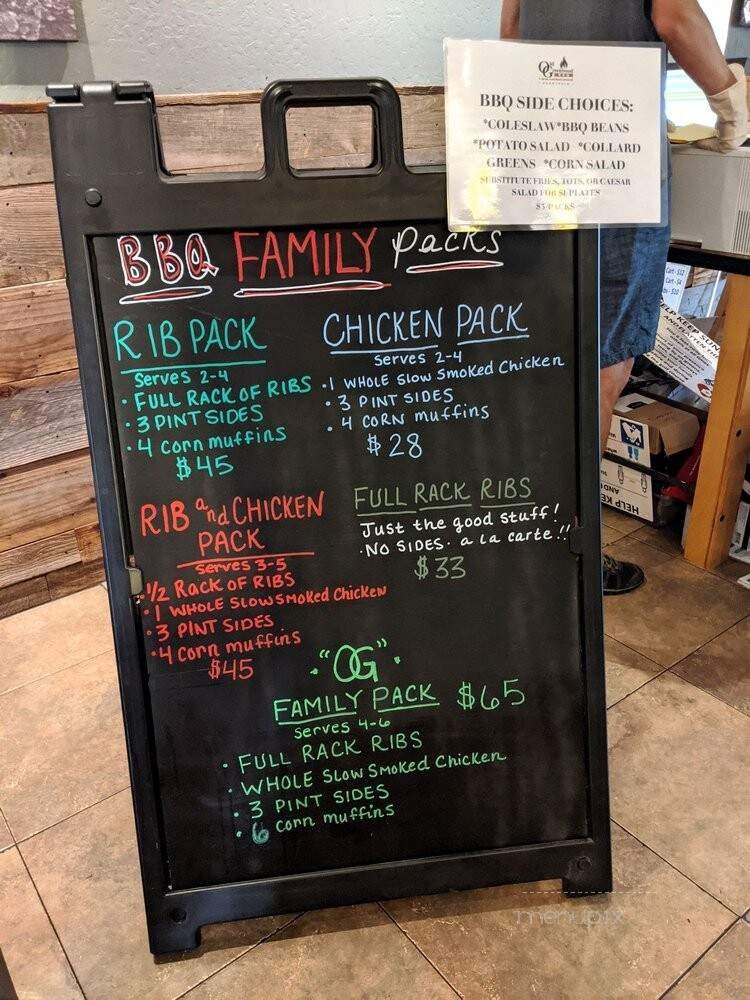 BBQ SIDE CHOICES:
*COLESLAW*BBQ BEANS
*POTATO SALAD *COLLARD
GREENS *CORN SALAD
SUBSTITUTE FRIES, TOTS, OR CAESAR
SALAD FOR $1 PLATES
$5 PACKS
BBQ FAMILY Packs
RIB PACK
Serves 2-4
• FULL RACK OF RIBS
• 3 PINT SIDES
• 4 corn muffins
$45
CHICKEN PACK
Serves 2-4
• 1 WHOLE Slow Smoked Chicken
• 3 PINT SIDES
• 4 CORN muffins
$28
RIB and CHICKEN
PACK
serves 3-5
• 1/2 Rack OF RIBS
• 1 WHOLE SLOW SMOKED Chicken
• 3 PINT SIDES
• 4 corn muffins
$45
FULL RACK RIBS
Just the good stuff!
• NO SIDES. a la carte!!
$33
"OG"
FAMILY PACK $65
serves 4-6
• FULL RACK RIBS
• WHOLE Slow Smoked Chicken
• 3 PINT SIDES
• 6 corn muffins
menupix